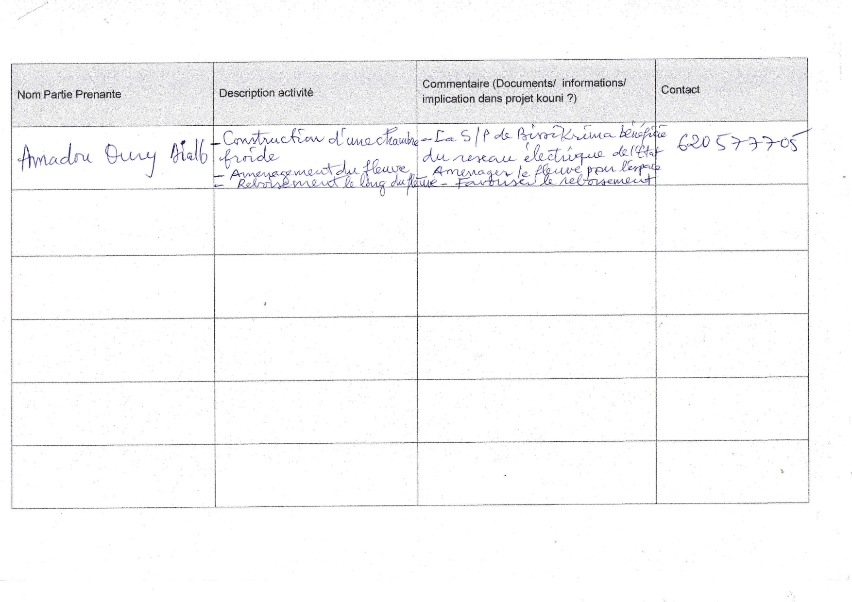 Nom Partie Prenante
Description activité
Commentaire (Documents/ informations/
implication dans projet kouni ?)
Contact
Amadou Oury
- Construction d'une chambre
froide
- Amenagement du fleuve
- Reboisement le long du fleuve
- La S/P de Bissikrima bénéficie
du reseau électrique de l'Etat
- Amenager le fleuve pour l'espace
- Favoriser le reboisement
620577705